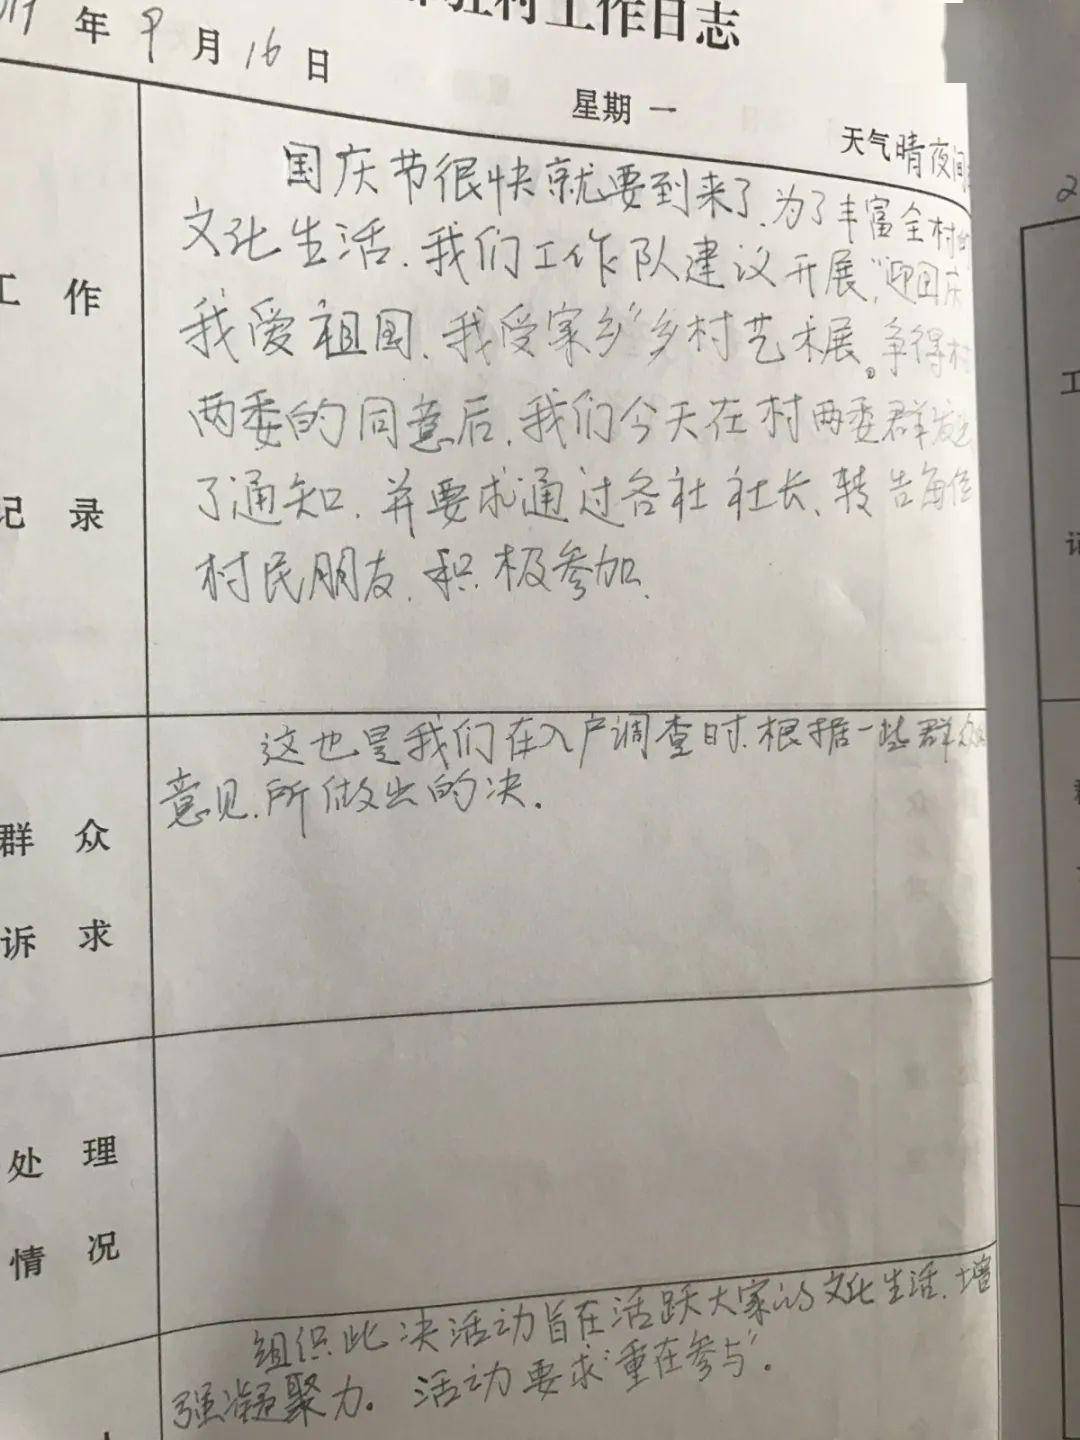 驻村工作日志
年 9 月 16 日
星期 一
天气 晴 夜间
工 作
记 录
国庆节很快就要到来了,为了丰富全村的
文化生活,我们工作队建议开展,"迎国庆
我爱祖国,我爱家乡"乡村艺术展。争得村
两委的同意后,我们今天在村两委群发
了通知,并要求通过各社社长、转告每位
村民朋友,积极参加.
群 众
诉 求
这也是我们在入户调查时,根据一些群众
意见,所做出的决.
处 理
情 况
组织此决活动旨在活跃大家的文化生活,增
强凝聚力。活动要求"重在参与".